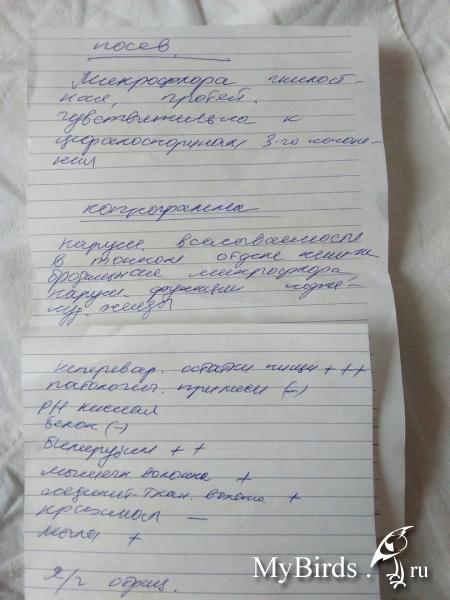 посев.
Микрофлора гнилост-
ная, протей.
чувствительна к
цефалоспоринам 3-го поколе-
ния
копрограмма
наруш. всасываемости
в тонком отделе кишки
бродильная микрофлора,
наруш. функции подже-
луд. железы
неперевар. остатки пищи +++
патологич. примеси (-)
pH кислая
белок (-)
билирубин ++
мышечн. волокна +
соединит. ткан. волокна +
крахмал —
мыла +
Я/г отриц.
MyBirds.ru